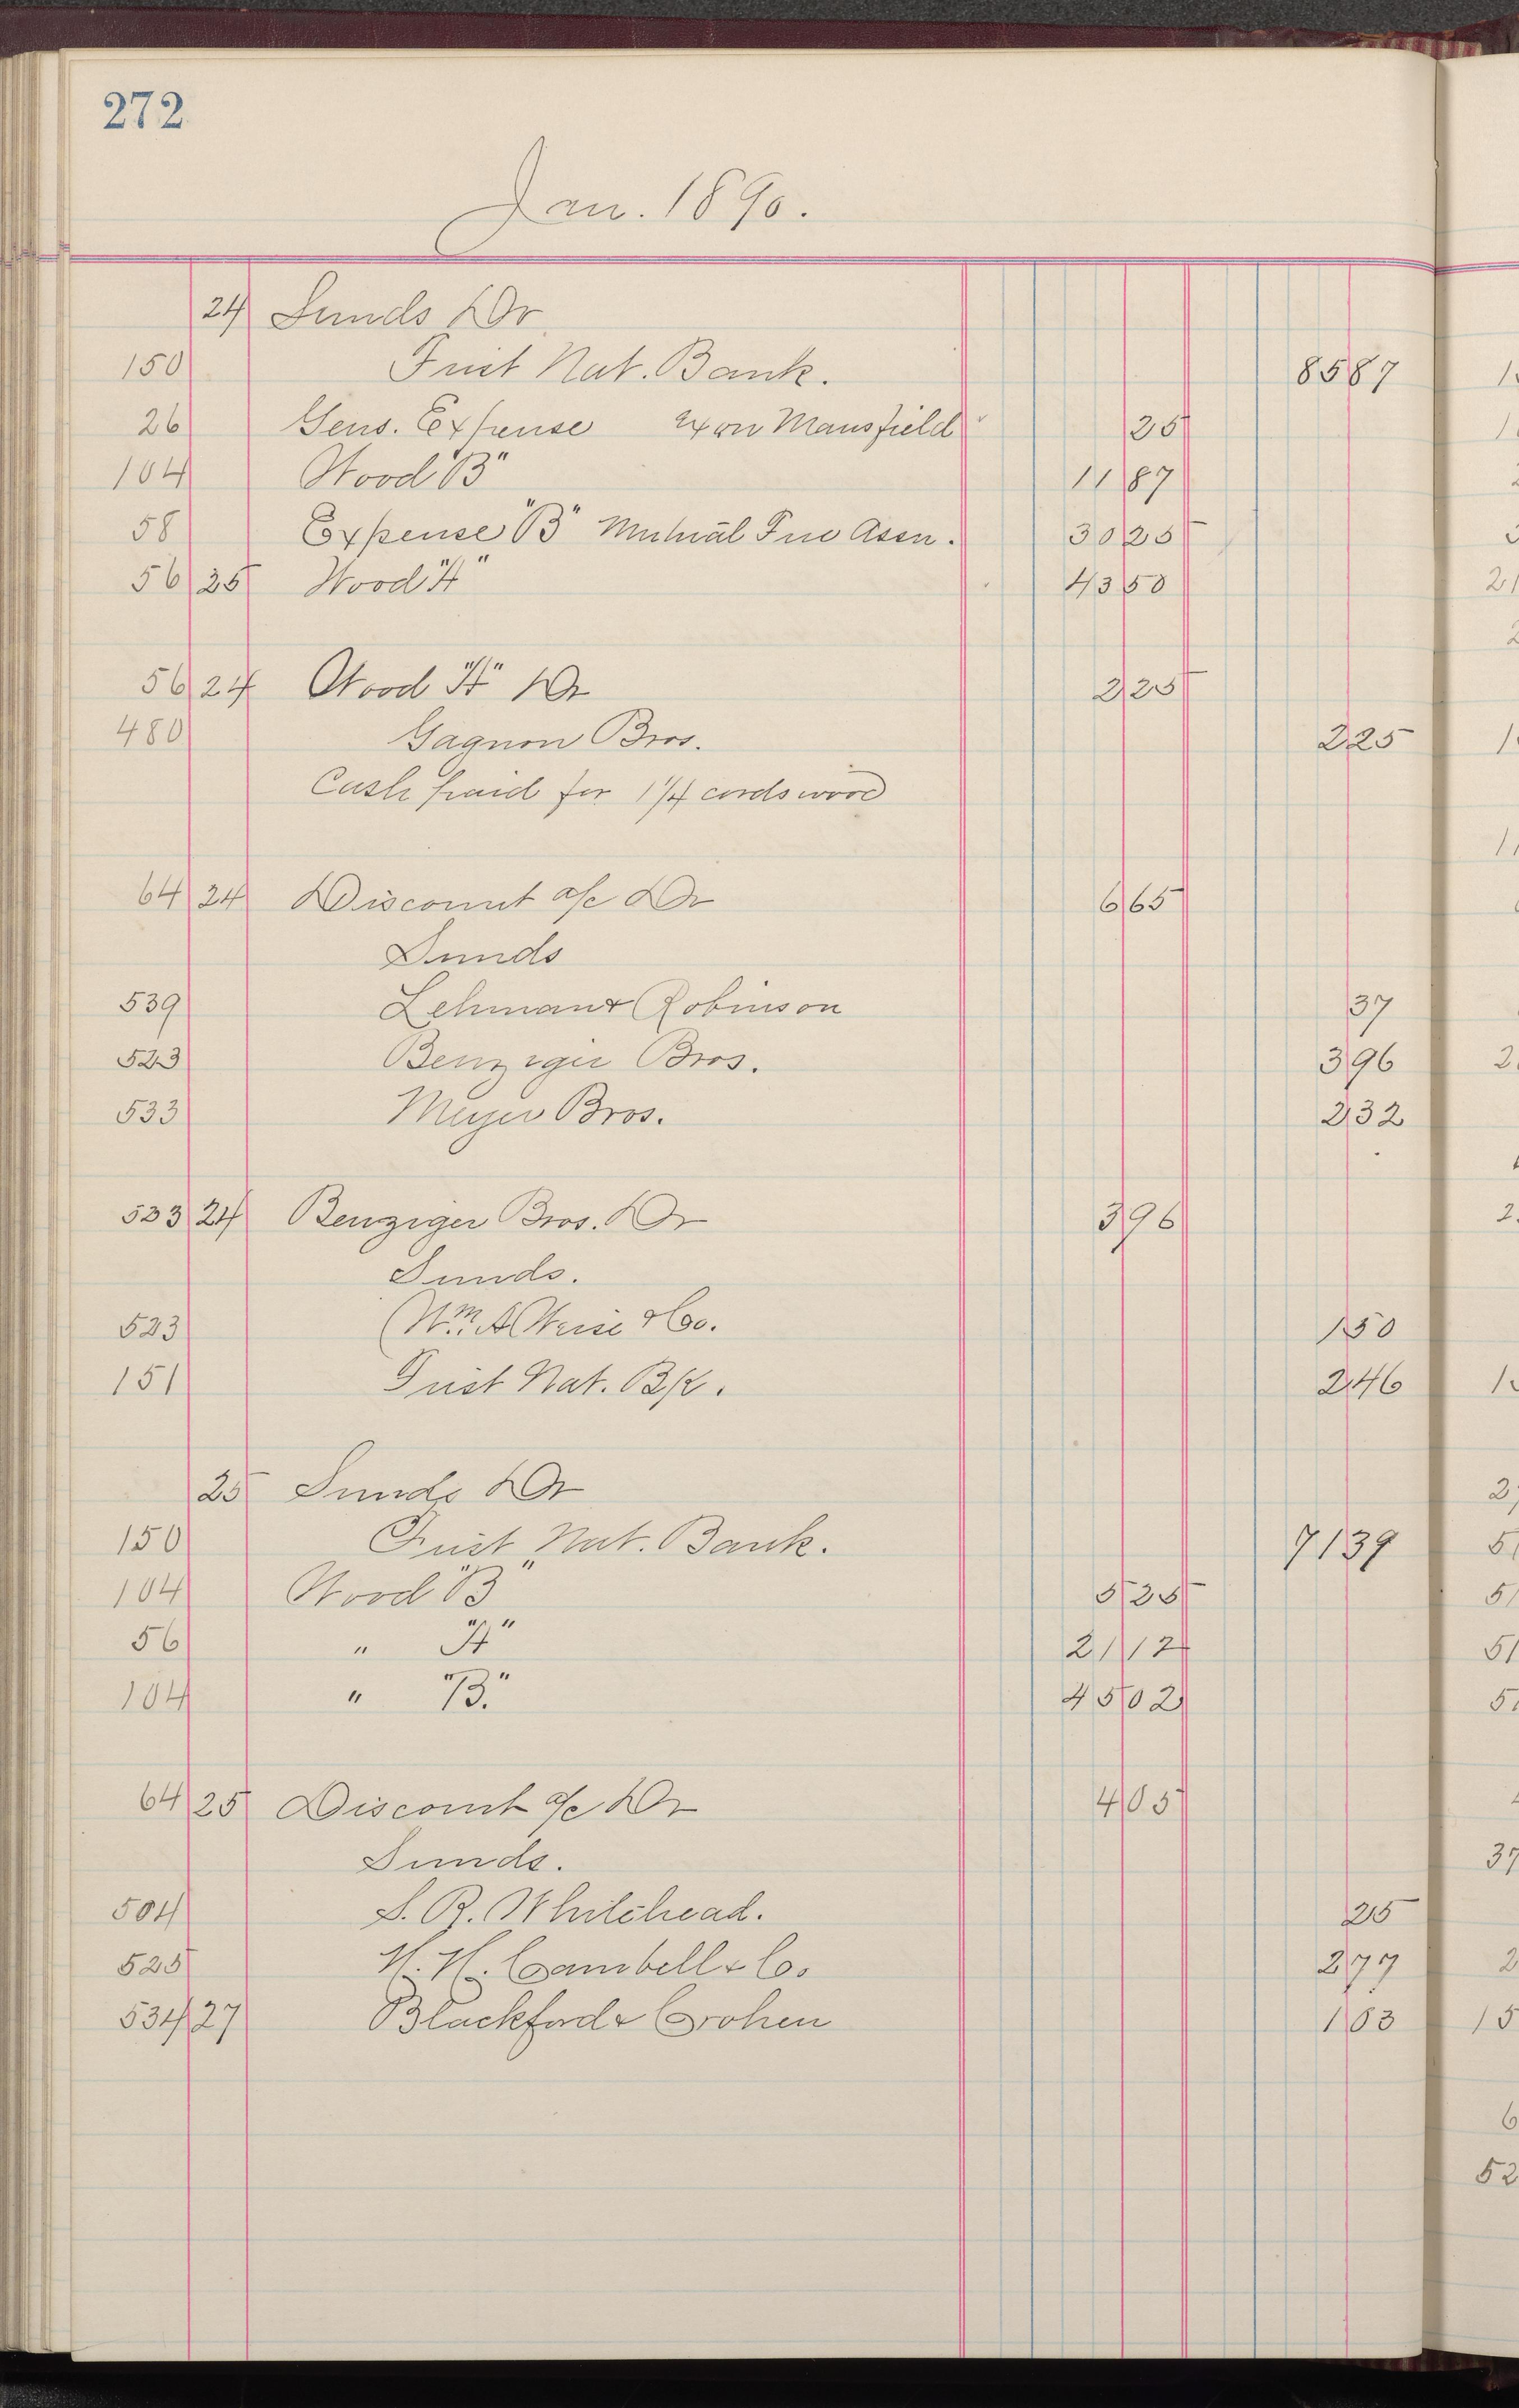 272
Jan. 1890.
24 Sunds Dr
150 First Nat. Bank. 8587
26 Gens. Expense Ex on Mansfield 25
104 Wood "B" 1187
58 Expense "B" Mutual Fire Assn. 3025
56 25 Wood "A" 4350
56 24 Wood "A" Dr 225
480 Gagnon Bros. 225
Cash paid for 1 1/4 cords wood
64 24 Discount a/c Dr 665
Sunds
539 Lehman & Robinson 37
523 Benziger Bros. 396
533 Meyer Bros. 232
523 24 Benziger Bros. Dr 396
Sunds.
523 Wm. A Weise & Co. 150
151 First Nat. Bk. 246
25 Sunds Dr
150 First Nat. Bank. 7139
104 Wood "B" 525
56 " "A" 2112
104 " "B." 4502
64 25 Discount a/c Dr 405
Sunds.
504 S. R. Whitehead. 25
525 H. H. Cambell & Co. 277
534 27 Blackford & Crohen 103